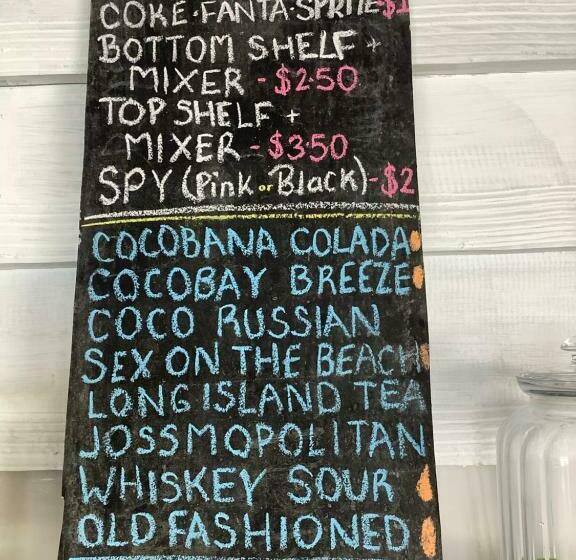 COKE·FANTA·SPRITE-$1
BOTTOM SHELF +
MIXER - $2.50
TOP SHELF +
MIXER - $3.50
SPY (Pink or Black)-$2
COCOBANA COLADA
COCOBAY BREEZE
COCO RUSSIAN
SEX ON THE BEACH
LONG ISLAND TEA
JOSSMOPOLITAN
WHISKEY SOUR
OLD FASHIONED